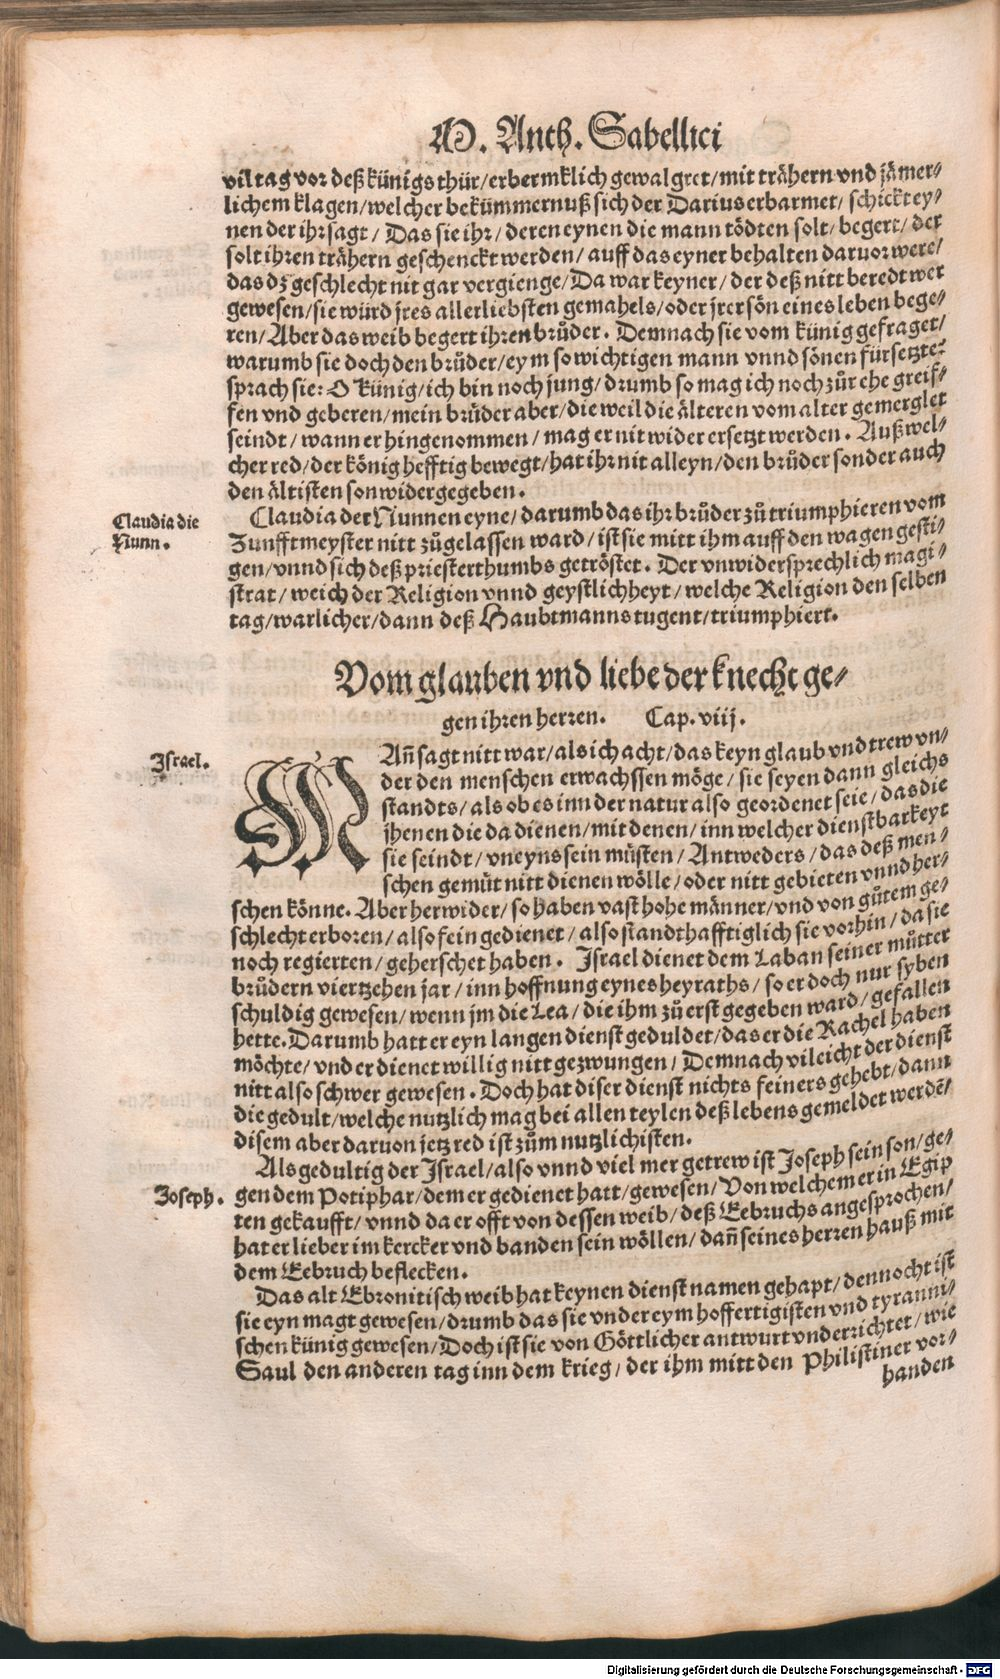 M. Anth. Sabellici
vil tag vor deß künigs thür/erbermklich gewalgret/mit trähern vnd jämer⸗
lichem klagen/welcher bekümmernuß sich der Darius erbarmet/ schickt ey⸗
nen der ihr sagt/ Das sie ihr/ deren eynen die mann tödten solt/ begert/ der
solt ihren trähern geschenckt werden/ auff das eyner behalten daruor were/
das dz geschlecht nit gar vergienge/ Da war keyner/ der deß nitt beredt wer
gewesen/sie würd jres allerliebsten gemahels/oder jrer sön eines leben bege⸗
ren/ Aber das weib begert ihren brůder. Demnach sie vom künig gefraget/
warumb sie doch den brůder/eym so wichtigen mann vnnd sönen fürsetzte?
sprach sie: O künig/ich bin noch jung/ drumb so mag ich noch zůr ehe greif⸗
fen vnd geberen/mein brůder aber/die weil die älteren vom alter gemerglet
seindt/ wann er hingenommen/ mag er nit wider ersetzt werden. Auß wel⸗
cher red/der könig hefftig bewegt/hat ihr nit alleyn/den brůder sonder auch
den ältisten son widergegeben.
Claudia die
Nunn.
Claudia der Nunnen eyne/ darumb das ihr brůder zů triumphieren vom
Zunfftmeyster nitt zůgelassen ward/ ist sie mitt ihm auff den wagen gesti⸗
gen/vnnd sich deß priesterthumbs getröstet. Der vnwidersprechlich magi⸗
strat/ weich der Religion vnnd geystlichheyt/ welche Religion den selben
tag/warlicher/dann deß Haubtmanns tugent/triumphiert.
Vom glauben vnd liebe der knecht ge⸗
gen ihren herren. Cap. viij.
Israel.
MAñ sagt nitt war/als ich acht/das keyn glaub vnd trew vn⸗
der den menschen erwachssen möge/ sie seyen dann gleichs
standts/ als ob es inn der natur also geordenet seie/ das die
jhenen die da dienen/mit denen/ inn welcher dienstbarkeyt
sie seindt/ vneyns sein müsten/ Antweders/ das deß men⸗
schen gemüt nitt dienen wölle/oder nitt gebieten vnnd her⸗
schen könne. Aber herwider/ so haben vast hohe männer/vnd von gůtem ge⸗
schlecht erboren/ also fein gedienet/ also standthafftiglich sie vorhin/ da sie
noch regierten/geherschet haben. Israel dienet dem Laban seiner můtter
brůdern viertzehen jar/ inn hoffnung eynes heyraths/ so er doch nur syben
schuldig gewesen/ wenn jm die Lea/ die ihm zů erst gegeben ward/ gefallen
hette. Darumb hatt er eyn langen dienst geduldet/das er die Rachel haben
möchte/ vnd er dienet willig nitt gezwungen/ Demnach vileicht der dienst
nitt also schwer gewesen. Doch hat diser dienst nichts feiners gehebt/dann
die gedult/welche nutzlich mag bei allen teylen deß lebens gemeldet werdē/
disem aber daruon jetz red ist zům nutzlichisten.
Joseph.
Als gedultig der Israel/also vnnd viel mer getrew ist Joseph sein son/ge⸗
gen dem Potiphar/dem er gedienet hatt/gewesen/ Von welchem er in Egip
ten gekaufft/ vnnd da er offt von dessen weib/ deß Eebruchs angesprochen/
hat er lieber im kercker vnd banden sein wöllen/ dañ seines herren hauß mit
dem Eebruch beflecken.
Das alt Ebronitisch weib hat keynen dienst namen gehapt/ dennocht ist
sie eyn magt gewesen/drumb das sie vnder eym hoffertigisten vnd tyranni⸗
schen künig gewesen/Doch ist sie von Göttlicher antwurt vnderrichtet/ wie
Saul den anderen tag inn dem krieg/ der ihm mitt den Philistiner vor⸗
handen
Digitalisierung gefördert durch die Deutsche Forschungsgemeinschaft - DFG